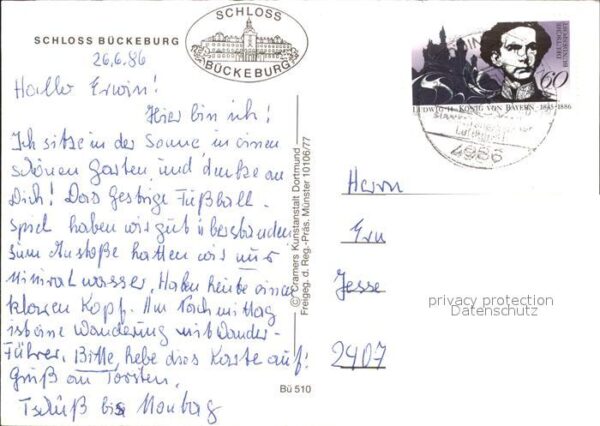 SCHLOSS BÜCKEBURG
SCHLOSS
BÜCKEBURG
26.6.86
Hallo Erwin!
Hier bin ich!
Ich sitze in der Sonne, in einen
schönen Garten, und denke an
Dich! Das gestrige Fußball-
spiel haben wir gut überstanden
zum Anstoße hatten wir nur
Mineralwasser. Haben heute einen
klaren Kopf. Am Nachmittag
ist eine Wanderung mit Wander-
Führer. Bitte, hebe dies Karte auf!
Gruß an Torsten.
Tschüß bis Montag
Bü 510
© Cramers Kunstanstalt Dortmund
Freigeg. d. Reg.-Präs. Münster 10106/77
DEUTSCHE
BUNDESPOST
60
LUDWIG II. KÖNIG VON BAYERN 1845-1886
4986
Herrn
Jesse
2407
privacy protection
Datenschutz